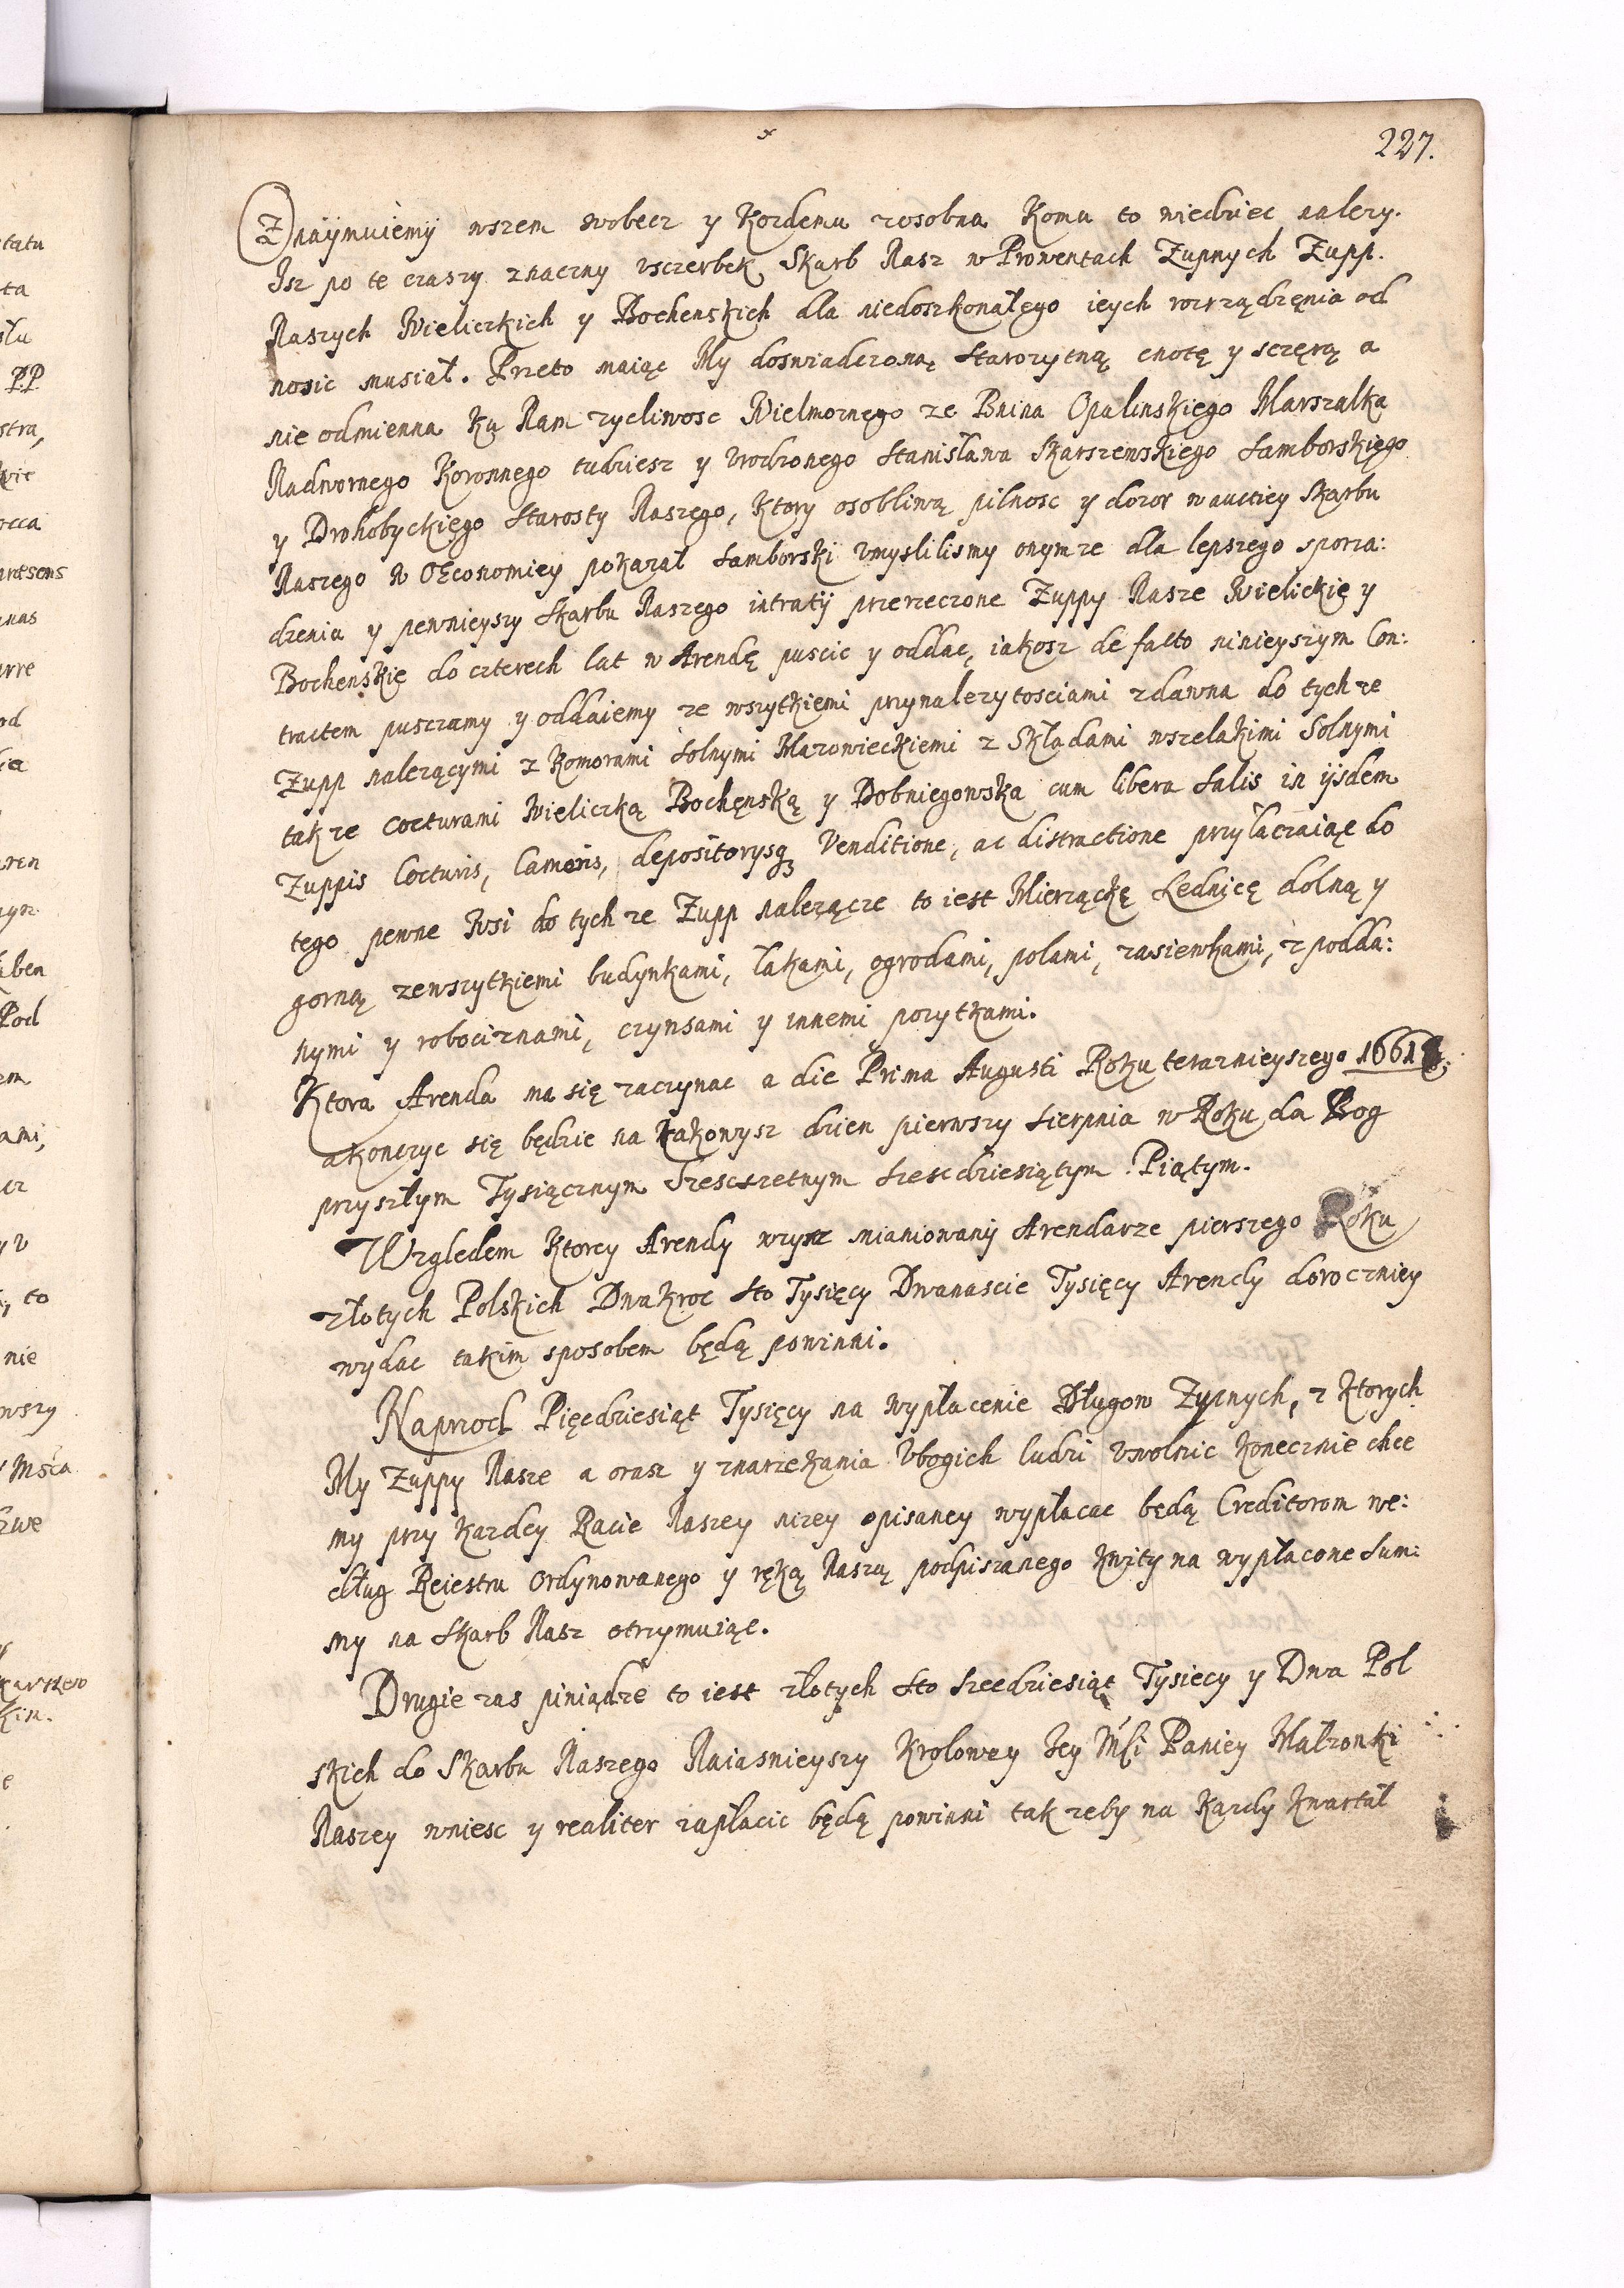 227.
Znaÿmuiemÿ wszem wobecz y Kozdemu zosobna Komu to wiedziec nalezy.
Isz po te czaszy znaczny vsczerbek Skarb Nasz w Prowentach Zupnych Zupp.
Naszych Wieliczkich y Bochenskich dla niedoszkonałego ieych rozrządzęnia od
nosic musiał. Przeto maiąc My doswiadczoną starozytną cnotę y sczęrą a
nie odmienna Ku Nam zycliwosc Wielmoznego ze Bnina Opalinskiego Marszalka
Nadwornego Koronnego tudziesz y Vrodzonego Stanisława Skarszewskiego Samborskięgo
y Drohobyckięgo Starosty Naszego, Ktory osobliwą pilnosc y dozor w auctiey Skarbu
Naszego w OEconomiey pokazał Samborski vmyslilismy onymze dla lepszego sporza:
dzenia y pewnieyszy Skarbu Naszego intratÿ przerzeczone Zuppy Nasze Wielickię y
Bochenskię do czterech lat w Arendę puscic y oddac, iakosz de facto ninieyszym Con:
tractem pusczamy y oddaiemy ze wszytkiemi przynalezytosciami zdawna do tych ze
Zupp nalezącymi z Komorami Solnymi Mazowieckiemi z Składami wszelakimi Solnymi
tak ze Cocturami Wieliczką Bochęnską y Dobniegowska cum libera Salis in ijsdem
Zuppis Cocturis, Cameris, depositorysq₃ Venditione, ac distractione przyłaczaiąc do
tego pewne Wsi do tych ze Zupp nalezącze to iest Mierząckę Lednicę dolną y
gorną zewszytkiemi budynkami, łakami, ogrodami, polami, zasiewkami, z podda:
nymi y robociznami, czynsami y innemi pozytkami.
Ktora Arenda ma się zaczynac a die Prima Augusti Roku terazniejszego 1661
akonczyc się będzie na takowysz dzien pierwszy Sierpnia w Roku da Bog
przyszłym Tysiącznym Szescsetnym Szescdziesiątym Piątym.
Wzgledem Ktorey Arendy wzysz mianiowanÿ Arendarze pierszego Roku
złotych Polskich Dwakroc Sto Tysięcy Dwanascie Tysięcy Arendy doroczniey
wydac takim sposobem będą powinni.
Naprzod Pięcdziesiąt Tysięcy na wypłacenie Długow Zypnych, z Ktorych
My Zuppy Nasze a orasz y znarzekania Vbogich ludzi vwolnic Konecznie chce
my przy Kazdey Racie Naszey nizey opisaney wypłacac będą Creditorom we:
dług Reiestru Ordynowanego y ręką Naszą podpiszanego Kwity na wypłacone Sum:
my na Skarb Nasz otrzymuiąc.
Drugie zas piniądze to iest złotych Sto Szedziesiąt Tysiecy y Dwa Pol
skich do Skarbu Naszego Naiasnieyszy Krolowey Jey Mśći Paniey Małzonki
Naszey wniesc y realiter zapłacic będą powinni tak zeby na Kazdy Kwartał